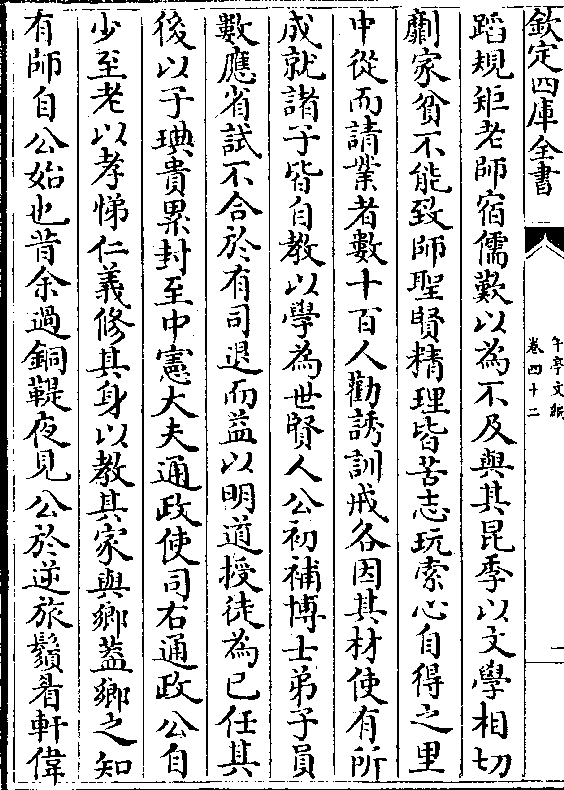 欽定四庫全書
午亭文編
卷四十二
一
蹈規矩老師宿儒歎以為不及與其昆季以文學相切
劘家貧不能致師聖賢精理皆苦志玩索心自得之里
中從而請業者數十百人勸誘訓戒各因其材使有所
成就諸子皆自教以學為世賢人公初補博士弟子員
數應省試不合於有司退而益以明道授徒為己任其
後以子琠貴累封至中憲大夫通政使司右通政公自
少至老以孝悌仁義修其身以教其家與鄉蓋鄉之知
有師自公始也昔余過銅鞮夜見公於逆旅鬚眉軒偉